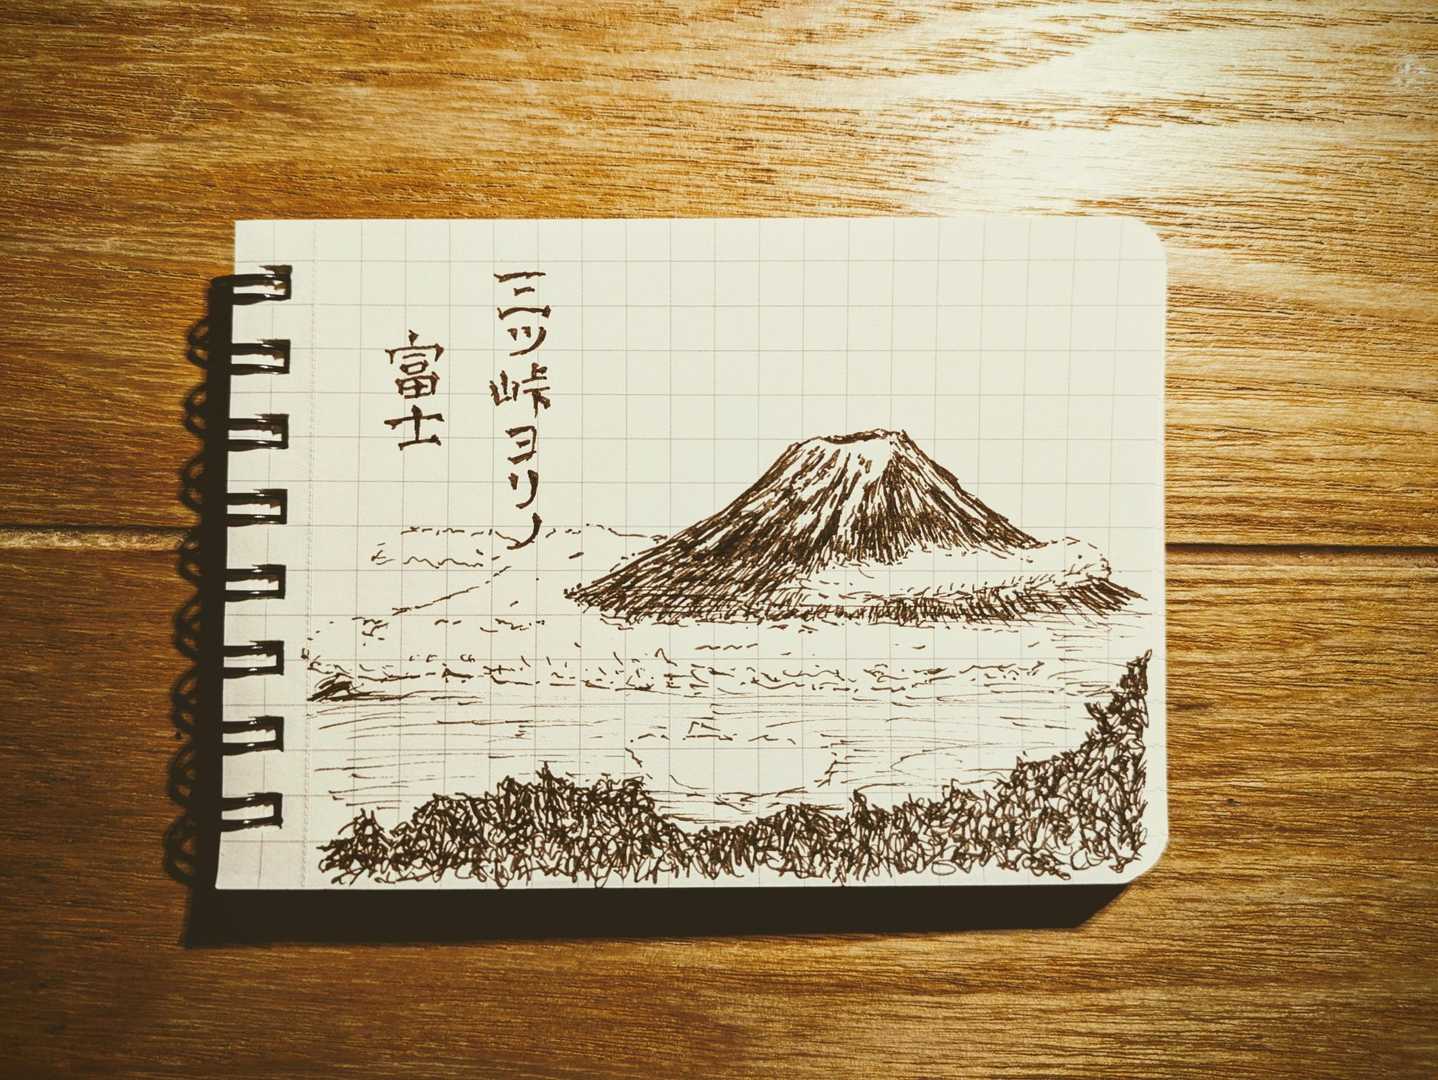 三ツ峠ヨリノ
富士